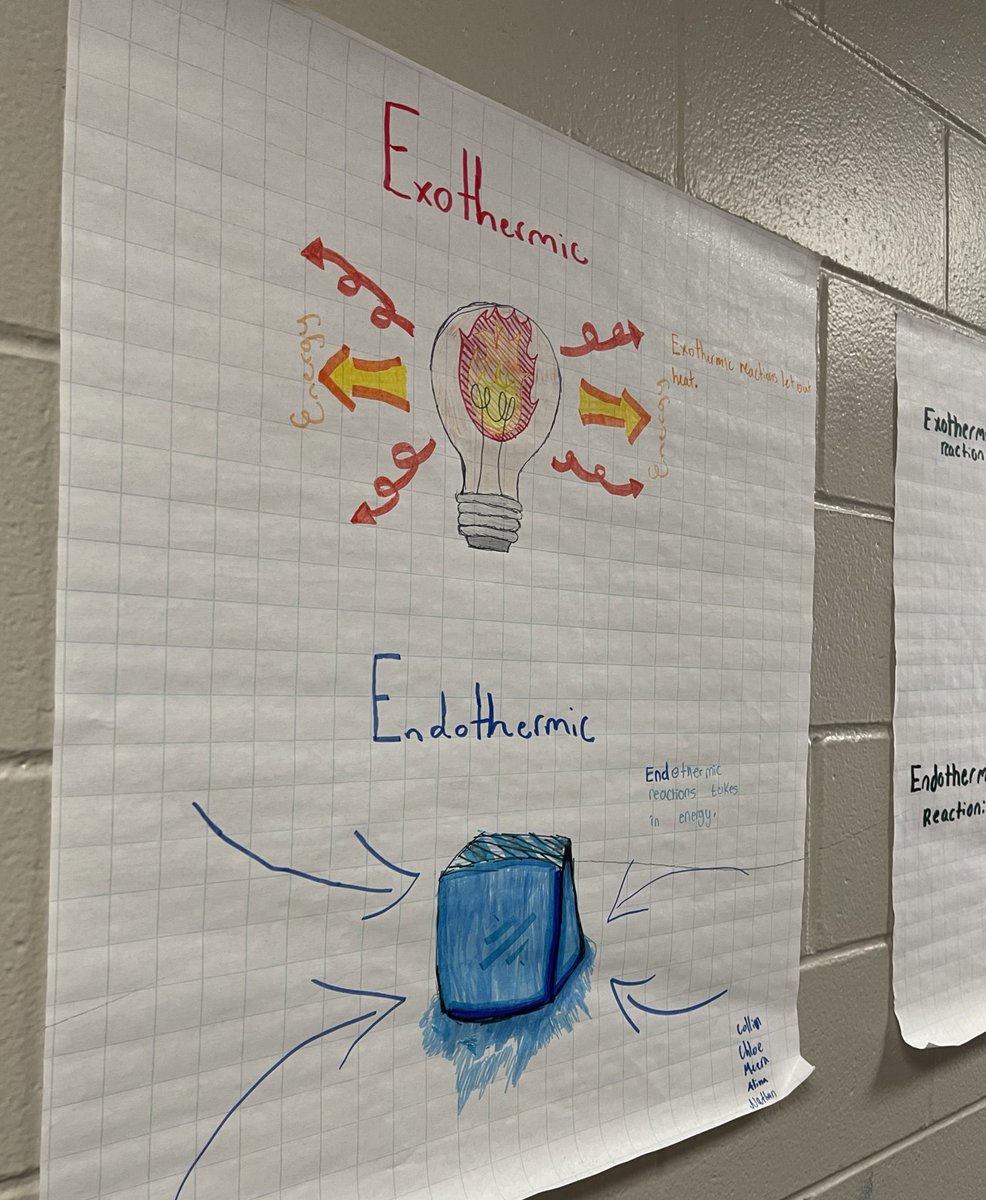 Exothermic
Energy
Exothermic reactions let out
heat.
Energy
Endothermic
Endothermic
reactions takes
in energy.
Collin
Chloe
Meera
Nathan
Exotherm
reaction
Endotherm
Reaction: